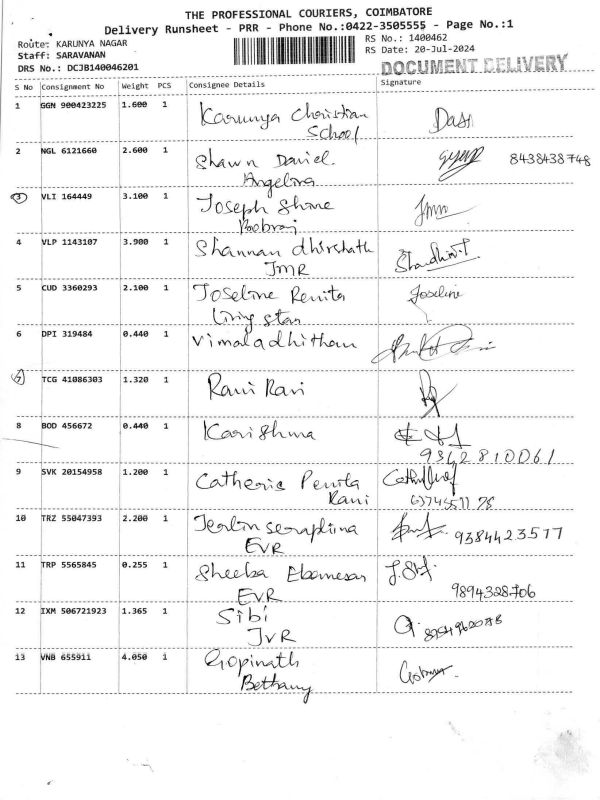 THE PROFESSIONAL COURIERS, COIMBATORE
Delivery Runsheet - PRR - Phone No.:0422-3505555 - Page No.:1
Route: KARUNYA NAGAR
RS No.: 1400462
Staff: SARAVANAN
RS Date: 20-Jul-2024
DRS No.: DCJB140046201
DOCUMENT DELIVERY
S No Consignment No Weight PCS Consignee Details Signature
1 GGN 900423225 1.600 1 Karunya Christian
School Dasi
2 NGL 6121660 2.600 1 Shawn Daniel. 8438438748
Angelina
3 VLI 164449 3.100 1 Joseph Shine
4 VLP 1143107 3.900 1 Shannan dhirshath
JMR
5 CUD 3360293 2.100 1 Joseline Renita Joseline
living stan
6 DPI 319484 0.440 1 Vimaladhithan
7 TCG 41086303 1.320 1 Rani Rani
8 BOD 456672 0.440 1 Karishma
9362810061
9 SVK 20154958 1.200 1 Catheris Penita
Rani
10 TRZ 55047393 2.200 1 Jerlin seraphina 9384423577
EVR
11 TRP 5565845 0.255 1 Sheeba Ebanesan
EVR 9894328706
12 IXM 506721923 1.365 1 Sibi
JVR
13 VNB 655911 4.050 1 Gopinath
Bethany